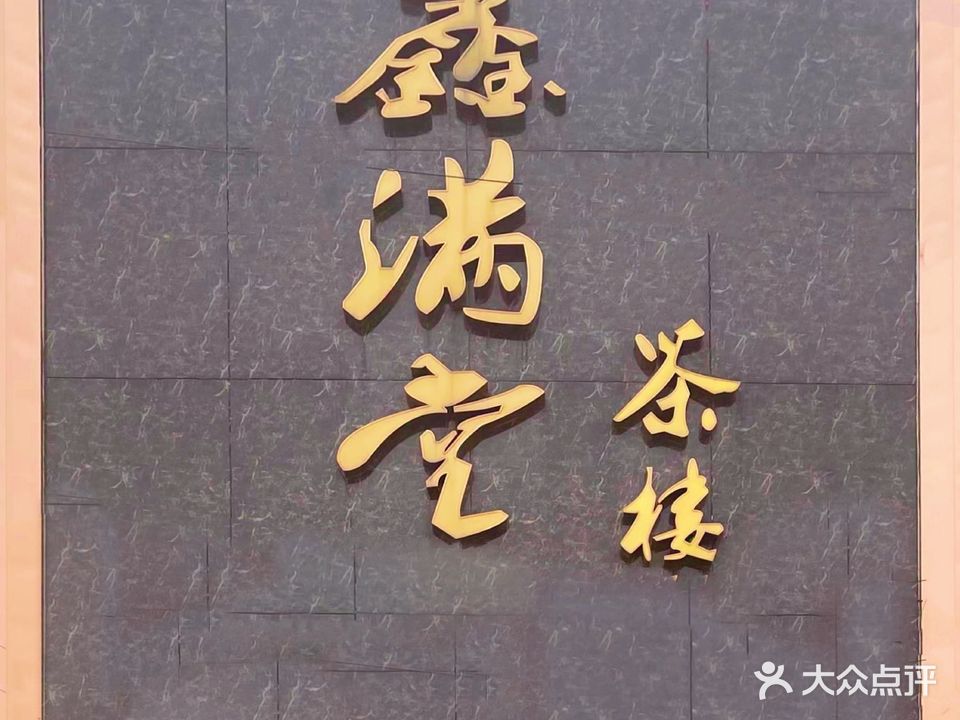 鑫满堂
茶楼
大众点评